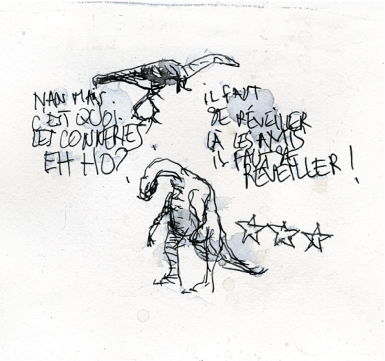 NAN MAIS
C'EST QUOI
CES CONNERIES
EH HO?
IL FAUT
SE RÉVEILLER
LÀ LES AMIS
IL FAUT SE
RÉVEILLER!